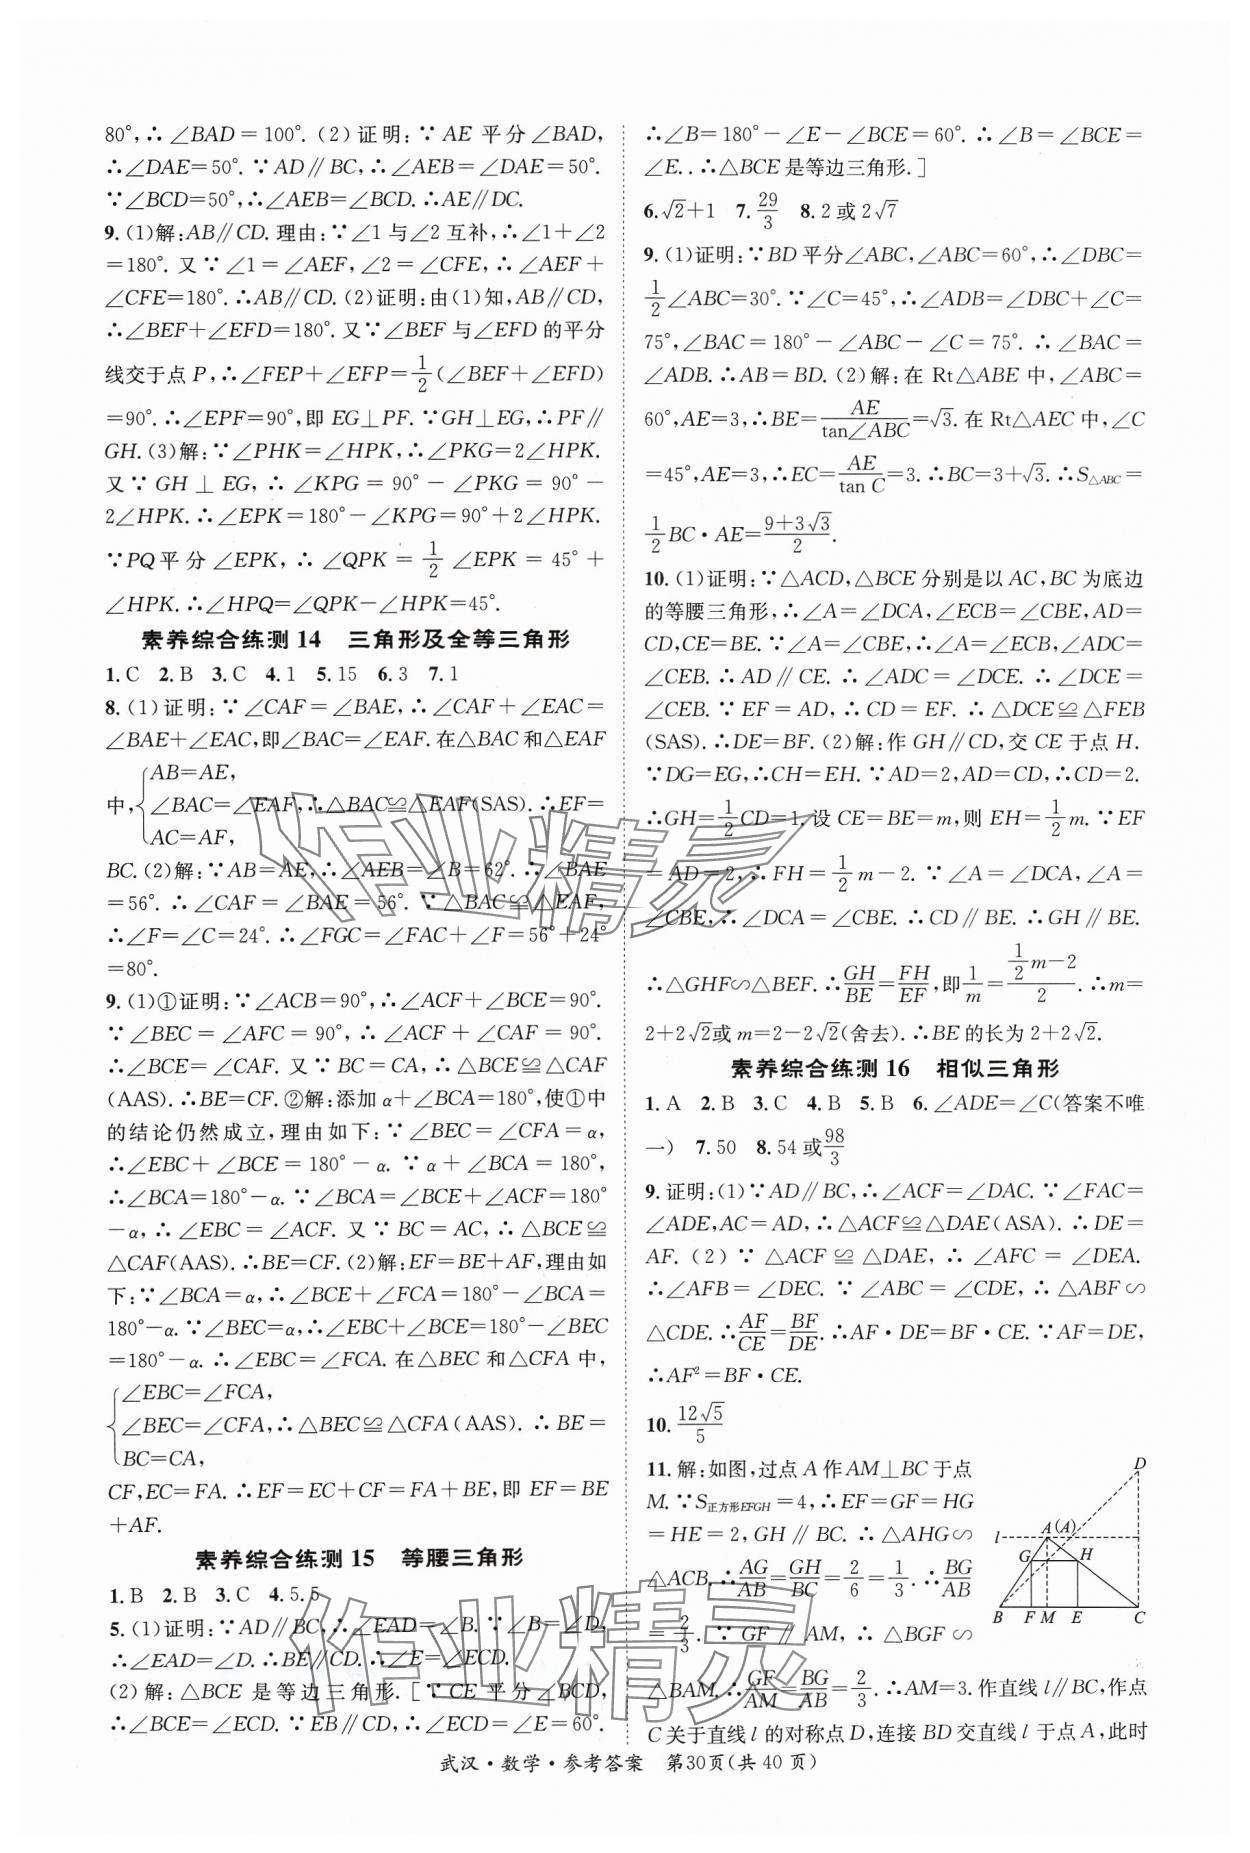 80°,∴∠BAD=100°.(2)证明:∵AE平分∠BAD,
∴∠DAE=50°.∵AD∥BC,∴∠AEB=∠DAE=50°.
∵∠BCD=50°,∴∠AEB=∠BCD.∴AE∥DC.
9.(1)解:AB∥CD.理由:∵∠1与∠2互补,∴∠1+∠2
=180°.又∵∠1=∠AEF,∠2=∠CFE,∴∠AEF+
∠CFE=180°.∴AB∥CD.(2)证明:由(1)知,AB∥CD,
∴∠BEF+∠EFD=180°.又∵∠BEF与∠EFD的平分
线交于点P,∴∠FEP+∠EFP=1/2(∠BEF+∠EFD)
=90°.∴∠EPF=90°,即EG⊥PF.∵GH⊥EG,∴PF∥
GH.(3)解:∵∠PHK=∠HPK,∴∠PKG=2∠HPK.
又∵GH⊥EG,∴∠KPG=90°-∠PKG=90°-
2∠HPK.∴∠EPK=180°-∠KPG=90°+2∠HPK.
∵PQ平分∠EPK,∴∠QPK=1/2∠EPK=45°+
∠HPK.∴∠HPQ=∠QPK-∠HPK=45°.
素养综合练测14 三角形及全等三角形
1.C 2.B 3.C 4.1 5.15 6.3 7.1
8.(1)证明:∵∠CAF=∠BAE,∴∠CAF+∠EAC=
∠BAE+∠EAC,即∠BAC=∠EAF.在△BAC和△EAF
AB=AE,
中,{∠BAC=∠EAF,∴△BAC≌△EAF(SAS).∴EF=
AC=AF,
BC.(2)解:∵AB=AE,∴∠AEB=∠B=62°.∴∠BAE
=56°.∴∠CAF=∠BAE=56°.∵△BAC≌△EAF,
∴∠F=∠C=24°.∴∠FGC=∠FAC+∠F=56°+24°
=80°.
9.(1)①证明:∵∠ACB=90°,∴∠ACF+∠BCE=90°.
∵∠BEC=∠AFC=90°,∴∠ACF+∠CAF=90°.
∴∠BCE=∠CAF.又∵BC=CA,∴△BCE≌△CAF
(AAS).∴BE=CF.②解:添加α+∠BCA=180°,使①中
的结论仍然成立,理由如下:∵∠BEC=∠CFA=α,
∴∠EBC+∠BCE=180°-α.∵α+∠BCA=180°,
∴∠BCA=180°-α.∵∠BCA=∠BCE+∠ACF=180°
-α,∴∠EBC=∠ACF.又∵BC=AC,∴△BCE≌
△CAF(AAS).∴BE=CF.(2)解:EF=BE+AF,理由如
下:∵∠BCA=α,∴∠BCE+∠FCA=180°-∠BCA=
180°-α.∵∠BEC=α,∴∠EBC+∠BCE=180°-∠BEC
=180°-α.∴∠EBC=∠FCA.在△BEC和△CFA中,
∠EBC=∠FCA,
{∠BEC=∠CFA,∴△BEC≌△CFA(AAS).∴BE=
BC=CA,
CF,EC=FA.∴EF=EC+CF=FA+BE,即EF=BE
+AF.
素养综合练测15 等腰三角形
1.B 2.B 3.C 4.5.5
5.(1)证明:∵AD∥BC,∴∠EAD=∠B.∵∠B=∠D,
∴∠EAD=∠D.∴BE∥CD.∴∠E=∠ECD.
(2)解:△BCE是等边三角形.[∵CE平分∠BCD,
∴∠BCE=∠ECD.∵EB∥CD,∴∠ECD=∠E=60°.
∴∠B=180°-∠E-∠BCE=60°.∴∠B=∠BCE=
∠E..∴△BCE是等边三角形.]
6.√2+1 7.29/3 8.2或2√7
9.(1)证明:∵BD平分∠ABC,∠ABC=60°,∴∠DBC=
1/2∠ABC=30°.∵∠C=45°,∴∠ADB=∠DBC+∠C=
75°,∠BAC=180°-∠ABC-∠C=75°.∴∠BAC=
∠ADB.∴AB=BD.(2)解:在Rt△ABE中,∠ABC=
60°,AE=3,∴BE=AE/tan∠ABC=√3.在Rt△AEC中,∠C
=45°,AE=3,∴EC=AE/tan C=3.∴BC=3+√3.∴S△ABC=
1/2BC·AE=(9+3√3)/2.
10.(1)证明:∵△ACD,△BCE分别是以AC,BC为底边
的等腰三角形,∴∠A=∠DCA,∠ECB=∠CBE,AD=
CD,CE=BE.∵∠A=∠CBE,∴∠A=∠ECB,∠ADC=
∠CEB.∴AD∥CE.∴∠ADC=∠DCE.∴∠DCE=
∠CEB.∵EF=AD,∴CD=EF.∴△DCE≌△FEB
(SAS).∴DE=BF.(2)解:作GH∥CD,交CE于点H.
∵DG=EG,∴CH=EH.∵AD=2,AD=CD,∴CD=2.
∴GH=1/2CD=1.设CE=BE=m,则EH=1/2m.∵EF
=AD=2,∴FH=1/2m-2.∵∠A=∠DCA,∠A=
∠CBE,∴∠DCA=∠CBE.∴CD∥BE.∴GH∥BE.
∴△GHF∽△BEF.∴GH/BE=FH/EF,即1/m=(1/2m-2)/2.∴m=
2+2√2或m=2-2√2(舍去).∴BE的长为2+2√2.
素养综合练测16 相似三角形
1.A 2.B 3.C 4.B 5.B 6.∠ADE=∠C(答案不唯
一) 7.50 8.54或98/3
9.证明:(1)∵AD∥BC,∴∠ACF=∠DAC.∵∠FAC=
∠ADE,AC=AD,∴△ACF≌△DAE(ASA).∴DE=
AF.(2)∵△ACF≌△DAE,∴∠AFC=∠DEA.
∴∠AFB=∠DEC.∵∠ABC=∠CDE,∴△ABF∽
△CDE.∴AF/CE=BF/DE.∴AF·DE=BF·CE.∵AF=DE,
∴AF²=BF·CE.
10.12√5/5
11.解:如图,过点A作AM⊥BC于点
M.∵S正方形EFGH=4,∴EF=GF=HG
=HE=2,GH∥BC.∴△AHG∽
△ACB.∴AG/AB=GH/BC=2/6=1/3.∴BG/AB
=2/3.∵GF∥AM,∴△BGF∽
△BAM.∴GF/AM=BG/AB=2/3.∴AM=3.作直线l∥BC,作点
C关于直线l的对称点D,连接BD交直线l于点A,此时
D
l A(A)
G H
B F M E C
武汉·数学·参考答案 第30页(共40页)
作业精灵
作业精灵